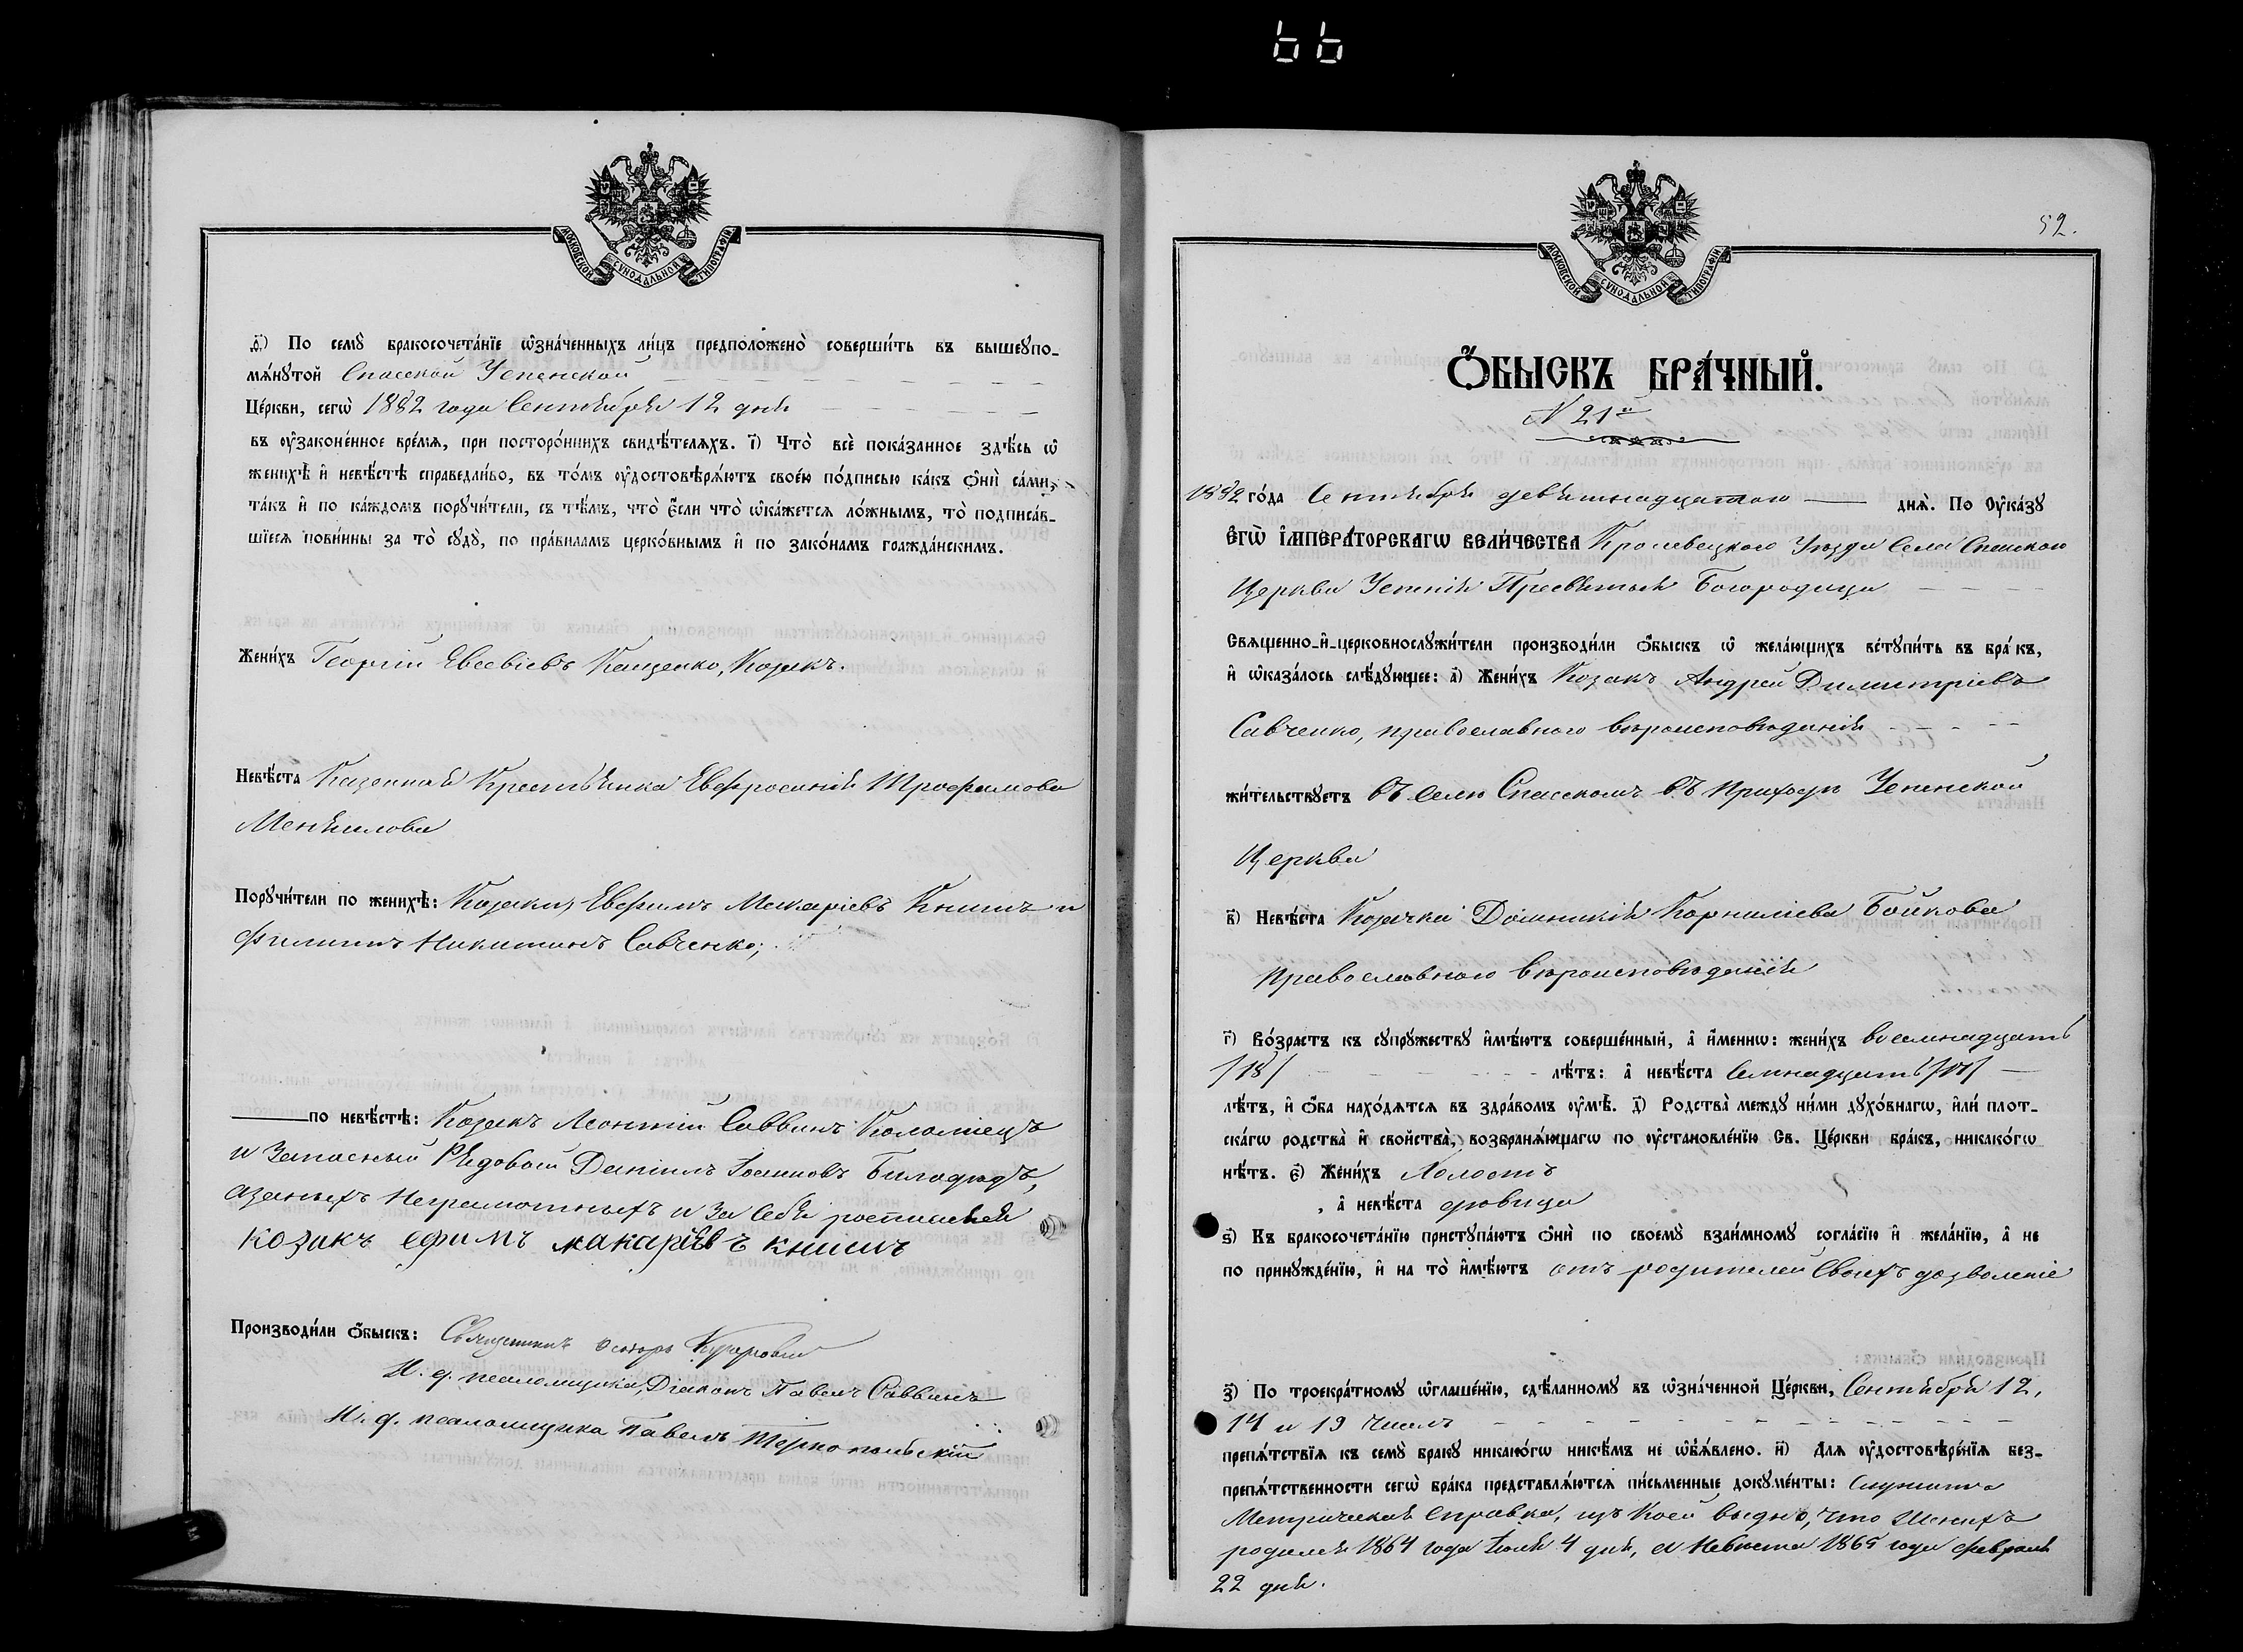 66
МОСКОВСКОЙ СѴНОДАЛЬНОЙ ТИПОГРАФІИ
ѳ҃) По семꙋ̀ бракосочета́нїе ѡ҆зна́ченныхъ ли́цъ предположено̀ соверши́ть въ вышеꙋпо-
мѧ́нꙋтой Спасской Успенской
Це́ркви, сегѡ̀ 1882 года Сентября 12 дня
въ ᲂу҆законе́нное вре́мѧ, при посторо́ннихъ свидѣ́телѧхъ. і҃) Что̀ всѐ пока́занное здѣ́сь ѡ҆
женихѣ̀ и҆ невѣ́стѣ справедли́во, въ то́мъ ᲂу҆достовѣрѧ́ютъ свое́ю по́дписью ка́къ ѻ҆нѝ са́ми,
та́къ и҆ по ка́ждомъ порꙋчи́тели, съ тѣ́мъ, что̀ є҆́сли что̀ ѡ҆ка́жетсѧ ло́жнымъ, то̀ подписа́в-
шїесѧ пови́нны за то̀ сꙋдꙋ̀, по пра́виламъ церко́внымъ и҆ по зако́намъ гражда́нскимъ.
Жени́хъ Георгій Евсевіевъ Кащенко, Козакъ.
Невѣ́ста Казенная Крестьянка Евфросинія Трофимова
Порꙋчи́тели по женихѣ̀: Козаки, Евфимъ Макаріевъ Книшъ и
Филиппъ Никитинъ Савченко;
по невѣ́стѣ: Козакъ Леонтій Саввинъ Коломіецъ
и Запасный Рядовой Даніилъ Іоанновъ Билодѣдъ,
а за ныхъ неграмотныхъ и за себя росписался
козакъ ефимъ макаріевъ книшъ
Производи́ли ѻ҆́быскъ: Священникъ
И. д. псаломщика, Діаконъ Павелъ Саввинъ
И. д. псаломщика Павелъ Тернопольскій
52.
МОСКОВСКОЙ СѴНОДАЛЬНОЙ ТИПОГРАФІИ
Ѻ҆́БЫСКЪ БРА́ЧНЫЙ.
N 21й
1882 го́да Сентября девятнадцатаго днѧ̀. По Оу҆ка́зꙋ
Є҆гѡ̀ І҆мпера́торскагѡ вели́чества Кролевецкого Уѣзда Села Спаского
Церкви Успенія Пресвятыя Богородицы
Свѧщенно-и҆-церковнослꙋжи́тели производи́ли ѻ҆́быскъ ѡ҆ жела́ющихъ встꙋпи́ть въ бра́къ,
и҆ ѡ҆каза́лось слѣ́дꙋющее: а҃) Жени́хъ Козакъ Андрей Димитріевъ
Савченко, православного вѣроисповѣданія
жи́тельствꙋетъ въ Селѣ Спасскомъ въ Приходѣ Успенской
Церкви
в҃) Невѣ́ста Козачка Домникія Корниліева Бойкова
православного вѣроисповѣданія
г҃) Во́зрастъ къ сꙋпрꙋ́жествꙋ и҆мѣ́ютъ соверше́нный, а҆ и҆́меннѡ: жени́хъ восемнадцать
/18/ лѣ́тъ: а҆ невѣ́ста Семнадцать /17/
лѣ́тъ, и҆ ѻ҆́ба нахо́дѧтсѧ въ здра́вомъ ᲂу҆мѣ̀. д҃) Родства̀ междꙋ ни́ми дꙋхо́внагѡ, и҆лѝ плот-
ска́гѡ родства̀ и҆ свойства̀, возбранѧ́ющагѡ по ᲂу҆становле́нїю Св. Це́ркви бра́къ, никако́гѡ
нѣ́тъ. є҃) Жени́хъ Холостъ
, а҆ невѣ́ста дѣвица
ѕ҃) Къ бракосочета́нїю пристꙋпа́ютъ ѻ҆нѝ по своемꙋ̀ взаи́мномꙋ согла́сїю и҆ жела́нїю, а҆ не
по принꙋжде́нїю, и҆ на то̀ и҆мѣ́ютъ отъ родителей своихъ дозволеніе
з҃) По троекра́тномꙋ ѡ҆глаше́нїю, сдѣ́ланномꙋ въ ѡ҆зна́ченной Це́ркви, Сентября 12,
14 и 19 числъ
препѧ́тствїѧ къ семꙋ̀ бракꙋ никако́гѡ никѣ́мъ не ѡ҆б̾ѧ́влено. и҃) Длѧ ᲂу҆достовѣре́нїѧ без-
препѧ́тственности сегѡ̀ бра́ка представлѧ́ютсѧ пи́сьменные докꙋме́нты:
Метрическая Справка, изъ коей выдно, что Женихъ
родился 1864 года Іюля 4 дня, а Невѣста 1865 года февраля
22 дня.